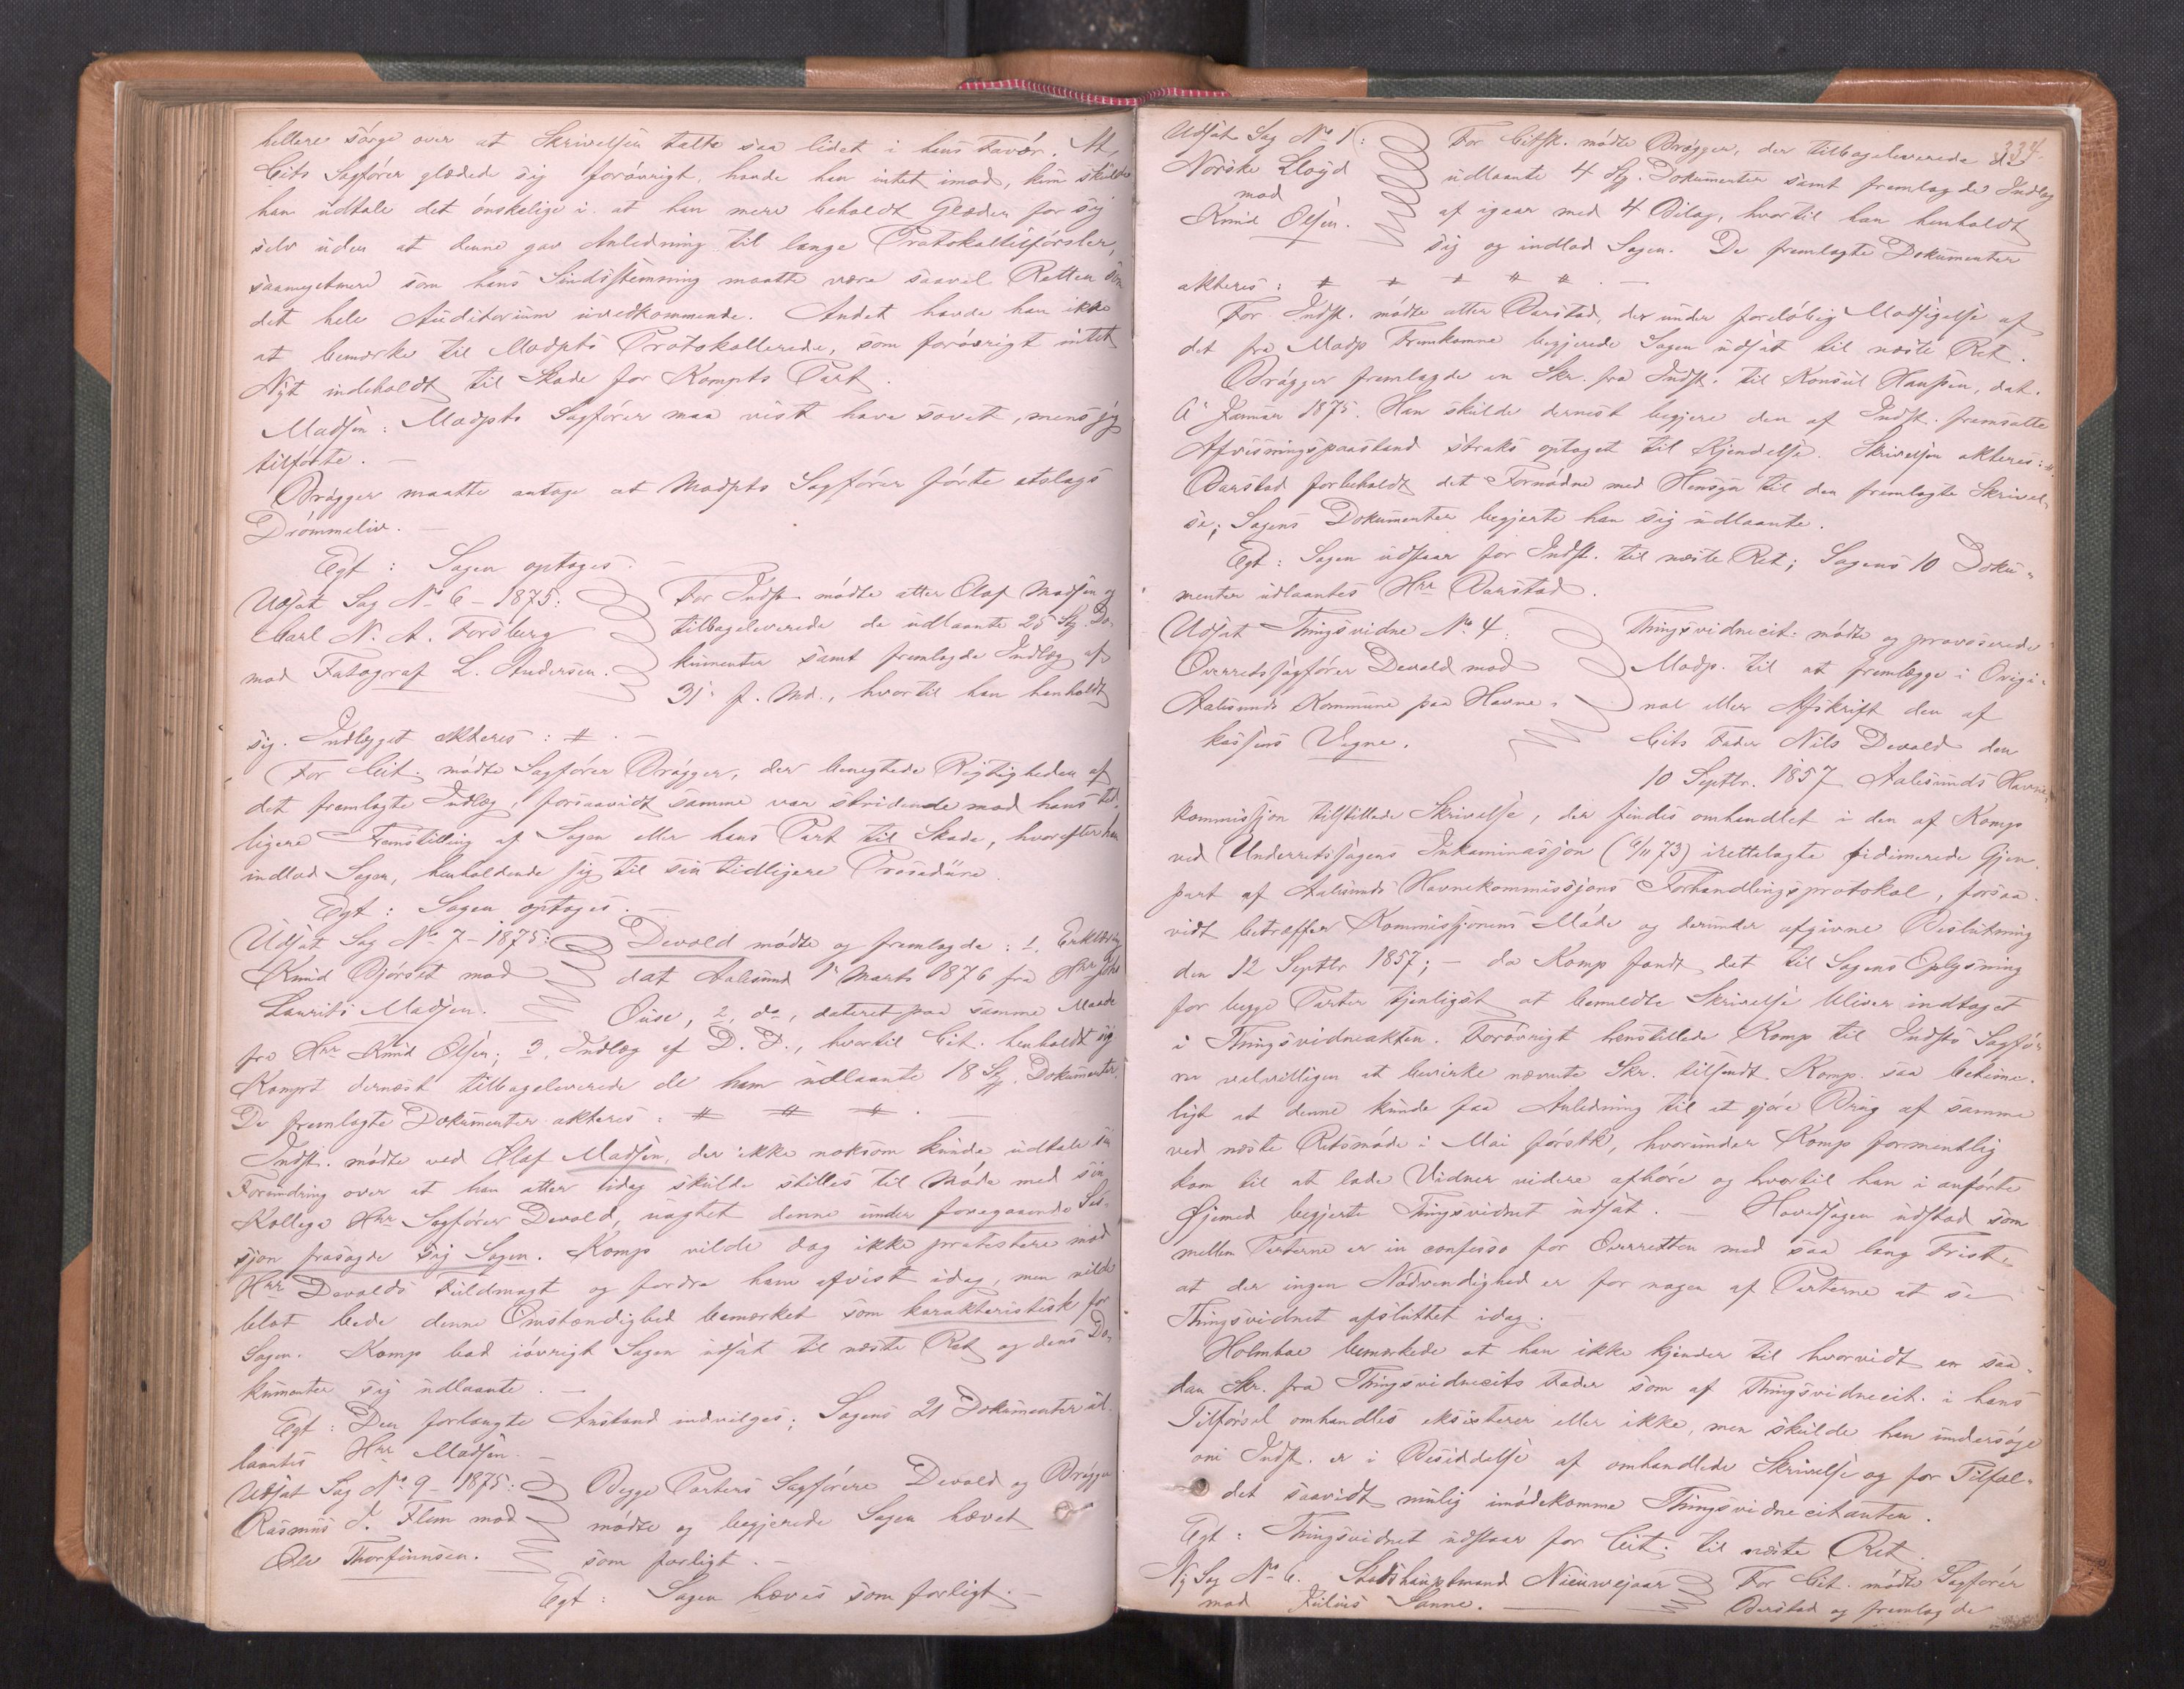 hellere sörge over at Skrivelsen talte saa lidet i hans Favör. At
Cits Sagförer glædede sig forövrigt, havde han intet imod, kun skulde
han udtale det önskelige i at han mere beholdt Glæden for sig
selv uden at denne gav Anledning til lange Protokoltilförsler,
saameget mere som hans Sindsstemning maatte være saavel Retten som
det hele Auditorium uvedkommende. Andet havde han ikke
at bemærke til Modpts Protokollerede, som forövrigt intet
Nyt indeholdt til Skade for Kompts Part.
Madsen: Modpts Sagförer maa vist have sovet, mens jeg
tilförte. —
Brögger maatte antage at Modpts Sagförer förte etslags
Drömmeliv. —
Egt: Sagen optages. —
Udsat Sag No 6 – 1875:
Carl N. A. Forsberg
mod Fotograf L. Andersen.
For Indst. mödte atter Olaf Madsen og
tilbageleverede de udlaante 25 Stg. Do-
kumenter samt fremlagde Indlæg af
31' f. Md., hvortil han henholdt
sig. Indlægget akteres: # . —
For Cit. mödte Sagförer Brögger, der benegtede Rigtigheden af
det fremlagte Indlæg, forsaavidt samme var stridende mod hans tid-
ligere Fremstilling af Sagen eller hans Part til Skade, hvorefter han
indlod Sagen, henholdende sig til sin tidligere Procedure.
Egt: Sagen optages. —
Udsat Sag No 7 – 1875:
Knud Bjørset mod
Laurits Madsen.
Devold mödte og fremlagde: 1, Erklæring
dat Aalesund 1' Marts 1876 fra Hrr Johs
Buse, 2, do, dateret paa samme Maade
fra Hrr Knud Olsen; 3, Indlæg af D. D., hvortil Cit. henholdt sig
Kompt dernæst tilbageleverede de ham udlaante 18 Stg. Dokumenter.
De fremlagte Dokumenter akteres: # # # . —
Indst. mödte ved Olaf Madsen, der ikke noksom kunde udtale sin
Forundring over at han atter idag skulde stilles til Möde med sin
Kollega Hrr Sagförer Devold, uagtet denne under foregaaende Ses-
sjon frasagde sig Sagen. Komp vilde dog ikke protestere mod
Hrr Devolds Fuldmagt og fordre ham afvist idag, men vilde
blot bede denne Omstændighed bemærket som karakteristisk for
Sagen. Komp bad iövrigt Sagen udsat til næste Ret og dens Do-
kumenter sig udlaante. —
Egt: Den forlangte Anstand indvilges; Sagens 21 Dokumenter ud-
laantes Hrr Madsen. —
Udsat Sag No 9 – 1875:
Rasmus J. Flem mod
Ole Thorfinnsen.
Begge Parters Sagförere Devold og Brögger
mödte og begjerede Sagen hævet
som forligt. —
Egt: Sagen hæves som forligt. —
334.
Udsat Sag No 1:
Norske Lloyd
mod
Knud Olsen.
For Citst. mödte Brögger, der tilbageleverede de
udlaante 4 Stg. Dokumenter samt fremlagde Indlæg
af igaar med 4 Bilag, hvortil han henholdt
sig og indlod Sagen. De fremlagte Dokumenter
akteres: # # # # # . —
For Indst. mödte atter Barstad, der under foreløbig Modsigelse af
det fra Modp Fremkomne begjerede Sagen udsat til næste Ret.
Brögger fremlagde en Skr. fra Indst. til Konsul Hansen, dat.
6' Januar 1875. Han skulde dernæst begjere den af Indst. fremsatte
Afvisningspaastand straks optaget til Kjendelse. Skrivelsen akteres: #
Barstad forbeholdt det Fornödne med Hensyn til den fremlagte Skrivel-
se; Sagens Dokumenter begjerte han sig udlaante.
Egt: Sagen udstaar for Indst. til næste Ret; Sagens 10 Doku-
menter udlaantes Hrr Barstad.
Udsat Thingsvidne No. 4:
Overretssagförer Devold mod
Aalesunds Kommune paa Havne-
kassens Vegne.
Thingsvidnecit. mödte og provoserede
Modp. til at fremlægge i Origi-
nal eller Afskrift den af
Cits Fader Nils Devold den
10 Septbr. 1857 Aalesunds Havne-
kommissjon tilstillede Skrivelse, der findes omhandlet i den af Komp
ved Underretssagens Inkaminasjon (6/11 73) irettelagte fidimerede Gjen-
part af Aalesunds Havnekommissjons Forhandlingsprotokol, forsaa-
vidt betræffer Kommissjonens Möde og derunder afgivne Beslutning
den 12 Septbr 1857; – da Komp fandt det til Sagens Oplysning
for begge Parter tjenligst at bemeldte Skrivelse bliver indtaget
i Thingsvidneakten. Forövrigt henstillede Komp til Indsts Sagfö-
rer velvilligen at bevirke nævnte Skr. tilsendt Komp. saa betime-
ligt at denne kunde faa Anledning til at gjöre Brug af samme
ved næste Retsmöde i Mai förstk, hvorunder Komp formentlig
kom til at lade Vidner videre afhöre og hvortil han i anförte
Øjemed begjerte Thingsvidnet udsat. — Hovedsagen udstod som
mellem Parterne er in confesso for Overretten med saa lang Frist,
at der ingen Nödvendighed er for nogen af Parterne at se
Thingsvidnet afsluttet idag.
Holmboe bemærkede at han ikke kjender til hvorvidt en saa-
dan Skr. fra Thingsvidnecits Fader som af Thingsvidnecit. i hans
Tilförsel omhandles eksisterer eller ikke, men skulde han undersöge
om Indst. er i Besiddelse af omhandlede Skrivelse og for Tilfæl-
det saavidt mulig imödekomme Thingsvidnecitanten.
Egt: Thingsvidnet udstaar for Cit. til næste Ret.
Ny Sag No 6. Stadshauptmand Nieuwejaar
mod Julius Sanne. —
For Cit. mödte Sagförer
Barstad og fremlagde